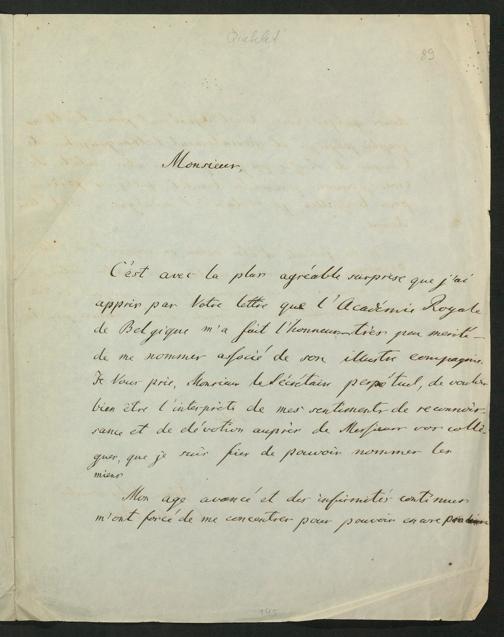 89
Monsieur,
C'est avec la plus agréable surprise que j'ai
appris par Votre lettre que l'Académie Royale
de Belgique m'a fait l'honneur très peu merité
de me nommer associé de son illustre compagnie.
Je Vous prie, Monsieur le Sécrétaire perpétuel, de vouloir
bien être l'interprète de mes sentiments de reconnois-
sance et de dévotion auprès de Messieurs vos collè-
gues, que je suis fier de pouvoir nommer les
miens.
Mon age avancé et des infirmités continues
m'ont forcé de me concentrer pour pouvoir encore
145